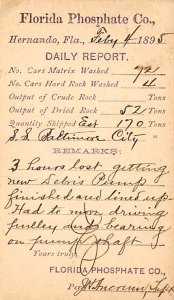 Florida Phosphate Co.,
Hernando, Fla., Feby 4 1895
DAILY REPORT.
No. Cars Matrix Washed 72
No. Cars Hard Rock Washed 4
Output of Crude Rock Tons
Output of Dried Rock 52 Tons
Quantity Shipped Est 170 Tons
S.S. Baltimore City
REMARKS:
3 hours lost getting
new Debris Pump
finished and lined up
Had to move driving
pulley and bearing
on pump shaft
Yours truly,
FLORIDA PHOSPHATE CO.,
Per Supt